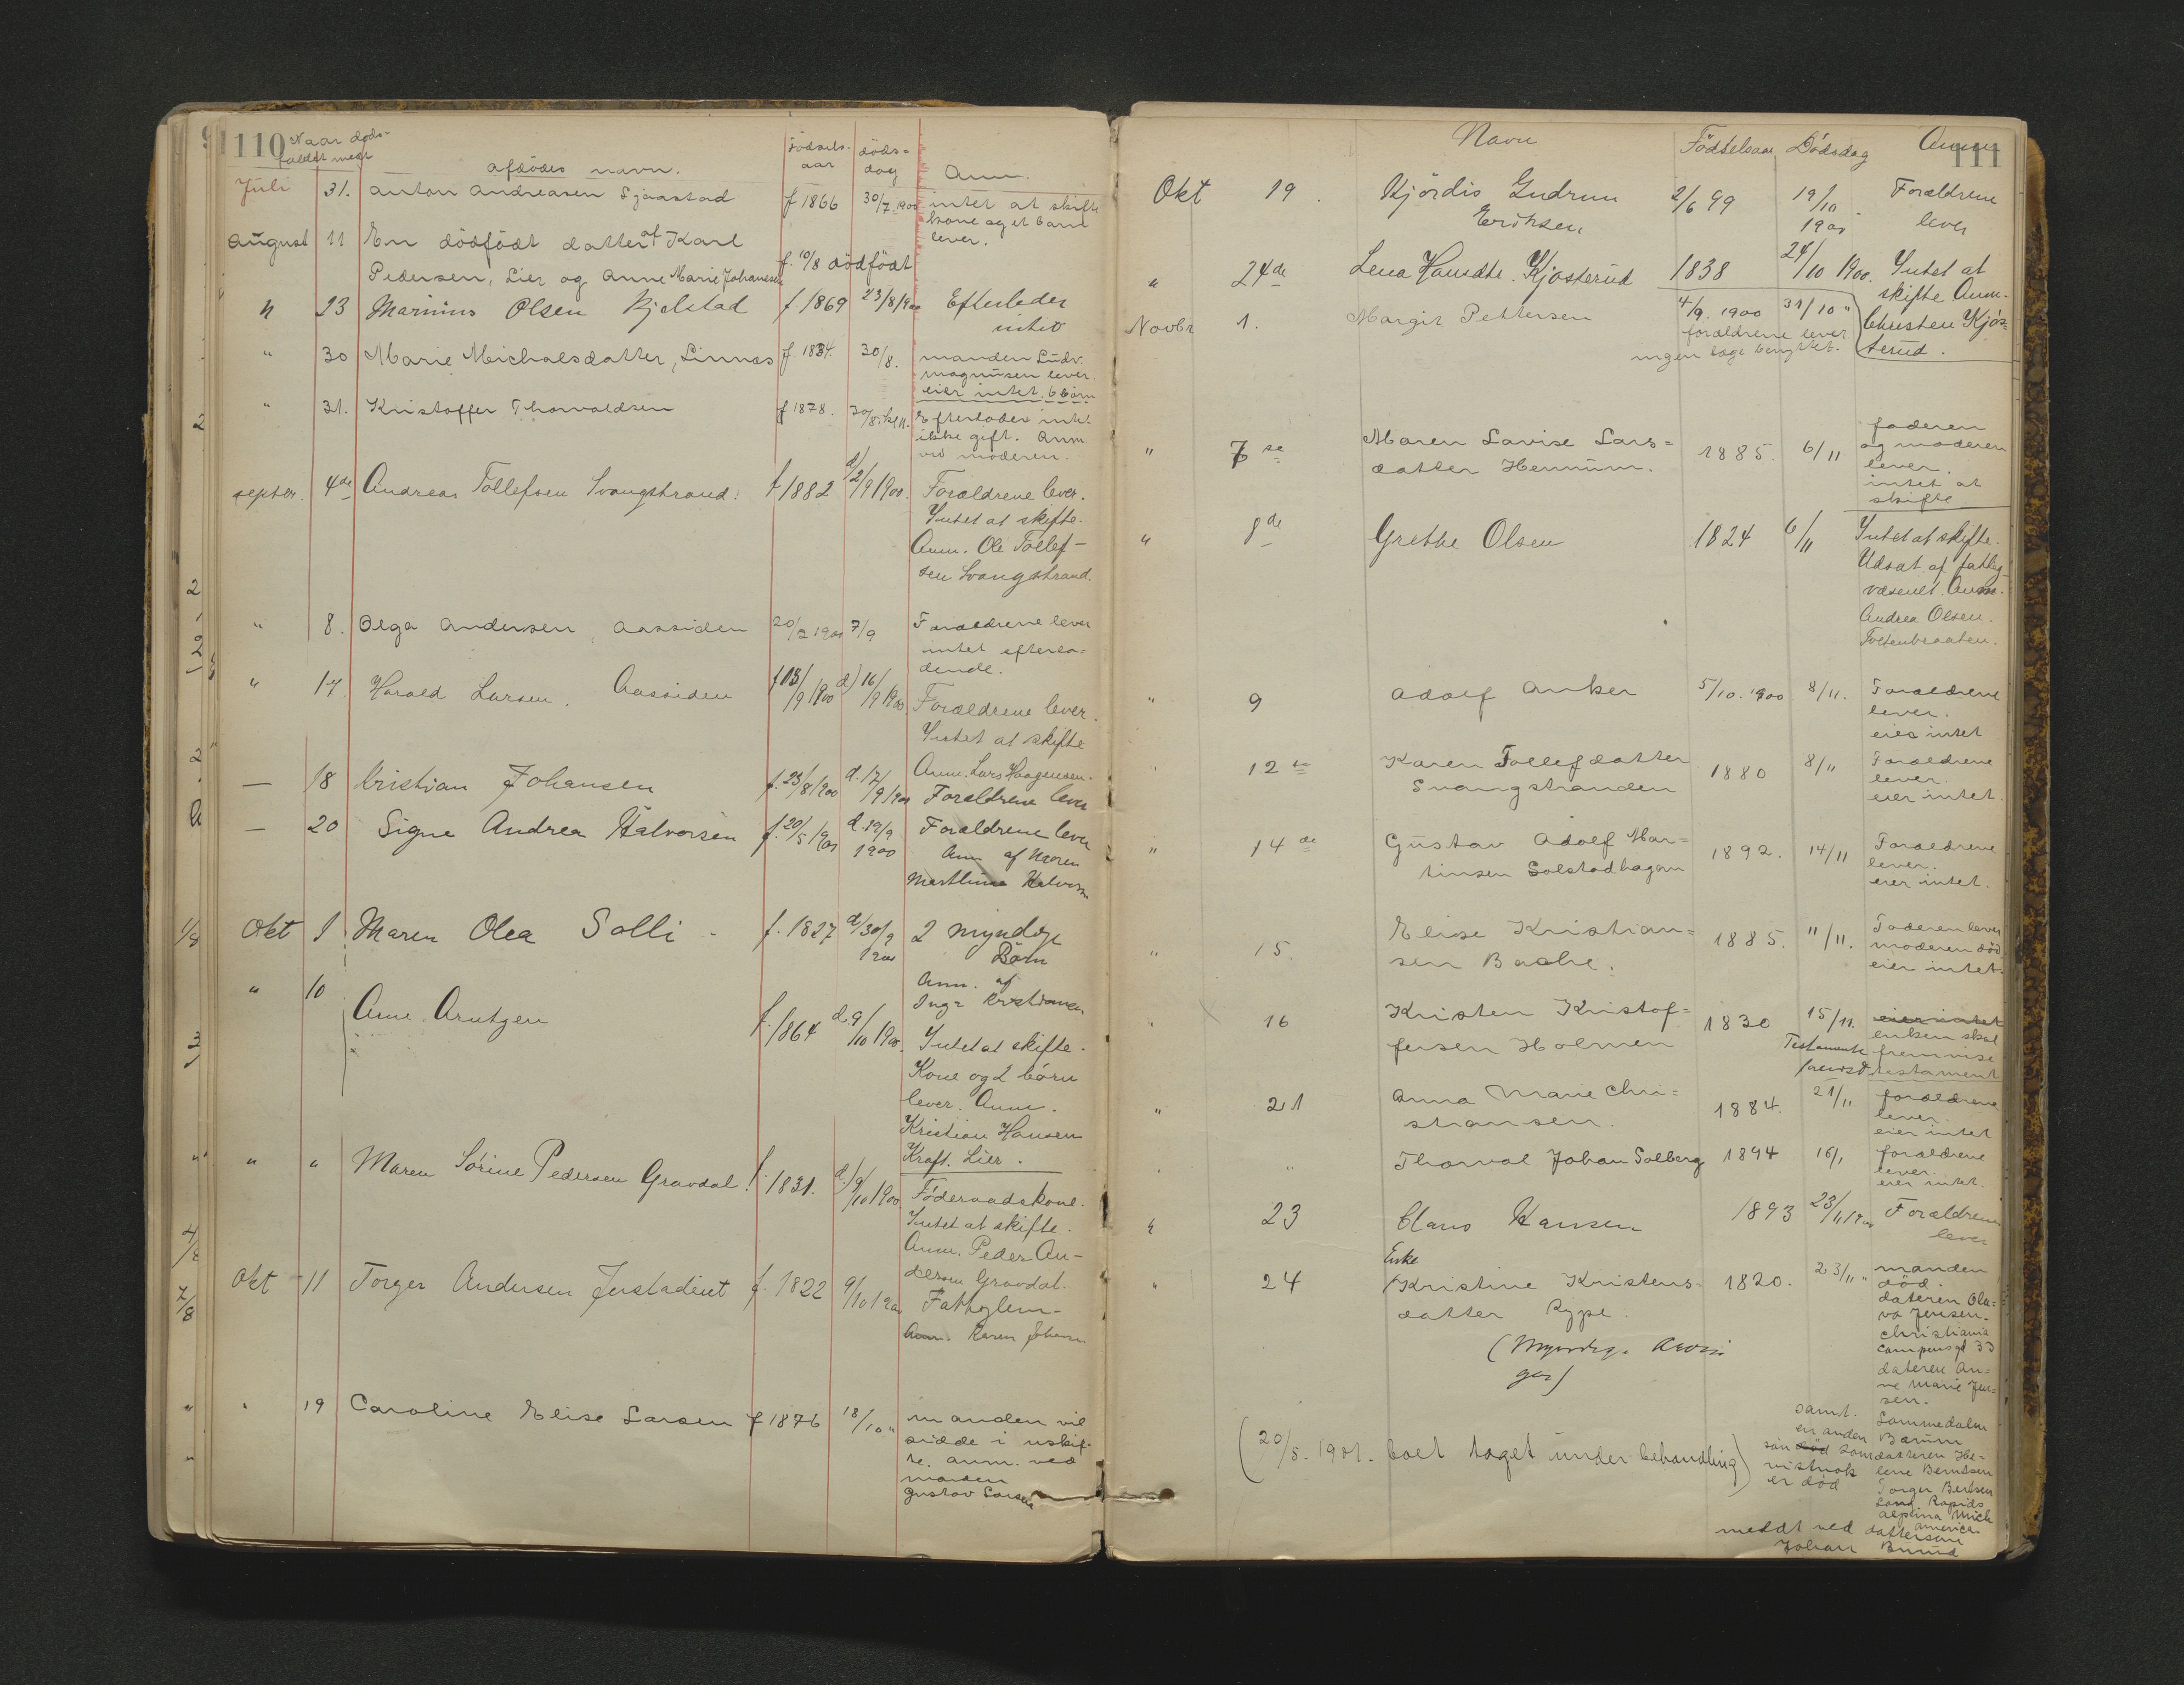 110 Naar döds-
faldet medt
afdödes navn.
födsels-
aar
döds=
dag
Anm.
Juli 31. Anton Andreasen Sjaastad f 1866 30/7.1900 intet at skifte
kone og et barn
lever.
August 11 En dödfödt datter af Karl
Pedersen, Lier og Anne Marie Johansen f. 10/8 dödfödt
" 23 Marinius Olsen Kjelstad f 1869 23/8/900 Efterlader
intet
" 30 Marie Michaelsdatter, Linnæs f. 1834. 30/8. manden Ludv.
Magnusen lever.
eier intet. 6 börn
" 31. Kristoffer Thorvaldsen f 1878. 30/8. kl 11. Efterlader intet
ikke gift. Anm.
ved moderen.
septbr. 4de Andreas Tollefsen Svangstrand. f 1882 d/2/9 1900. Forældrene lever.
Intet at skifte.
Anm. Ole Tollef-
sen Svangstrand.
" 8. Olga Andersen, Aassiden 20/2 1900 7/9 Forældrene lever
intet efterla-
dende.
" 17. Harald Larsen. Aassiden f 13/9 1900 d) 16/9 1900. Forældrene lever.
Intet at skifte
Anm. Lars Haagensen.
— 18 Kristian Johansen f. 23/8/900 d. 17/9/900 Forældrene lever
— 20 Signe Andrea Halvorsen f. 20/5/900 d. 19/9 1900 Forældrene lever
Anm af Moren
Marthine Halvorsen
Okt 1 Maren Olea Solli - f. 1827 d/30/9 1900 2 myndige
Börn
Anm. af
Inga Kristiansen
" 10 Arne Arntzen f. 1864 d. 9/10 1900. Intet at skifte.
Kone og 2 börn
lever. Anm.
Kristian Hansen
Kraft. Lier.
" " Maren Sörine Pedersen Gravdal. f. 1831. d.) 9/10 1900. Föderaadskone.
Intet at skifte.
Anm. Peder An-
dersen Gravdal.
Okt 11 Torger Andersen Justadeiet f. 1822 9/10 1900 Fattiglem-
Anm. Karen Johans
" 19 Caroline Elise Larsen f 1876 18/10 " manden vil
sidde i uskif-
te. anm. ved
manden
Gustav Larsen
Navn Födselsaar Dödsdag Anm
111
Okt 19. Hjördis Gudrun 2/6 99 19/10 Forældrene
Eriksen, 1900 lever
" 24de Lena Hansdtr. Kjösterud 1838 24/10 1900. Intet at
skifte Anm.
Christen Kjös=
terud.
Novbr 1. Margit Pettersen 4/9. 1900 31/10 "
forældrene lever
ingen læge benyttet.
" 7de Maren Lovise Lars=
datter Hennum. 1885. 6/11 faderen
og moderen
lever.
intet at
skifte
" 8de Grethe Olsen 1824 6/11 Intet at skifte.
Udsat af fattig-
væsenet. Anm.
Andrea Olsen.
Toltenbraaten.
" 9 Adolf Anker 5/10. 1900 8/11. Forældrene
lever.
eies intet
" 12te Karen Tollefsdatter
Svangstranden 1880 8/11 Forældrene
lever.
eier intet.
" 14de Gustav Adolf Mar=
tinsen Solstadhagen 1892. 14/11 Forældrene
lever.
eier intet.
" 15 Elise Kristian=
sen Bache. 1885. 11/11. Faderen lever
moderen död
eier intet.
" 16 Kristen Kristof=
fersen Holmen 1830 15/11. eier intet
enken skal
fremvise
testament
Testamente
forevist
" 21 Anna Marie Chri=
stiansen. 1884. 21/11 forældrene
lever.
eier intet
" Thorval Johan Solberg 1894 16/1 forældrene
lever.
eier intet.
" 23 Claus Hansen 1893 23/11 1900 Forældrene
lever
Enke
" 24 Kristine Kristens=
datter Rype. 1820. 23/11 " manden
död.
dateren Olu=
va Jensen.
Christiania
Campensgd 33
dateren An=
ne Marie Jen=
sen.
Sommedalen
Bærum
datteren He=
lene Berntsen
Torger Berntsen
Long Rapids
Alpena Mich
America
(Myndige Arvin
ger)
(20/5. 1901. boet taget under behandling)
samt.
en anden
sön död som
vistnok
er död
meldt ved dattersön
Johan Burud